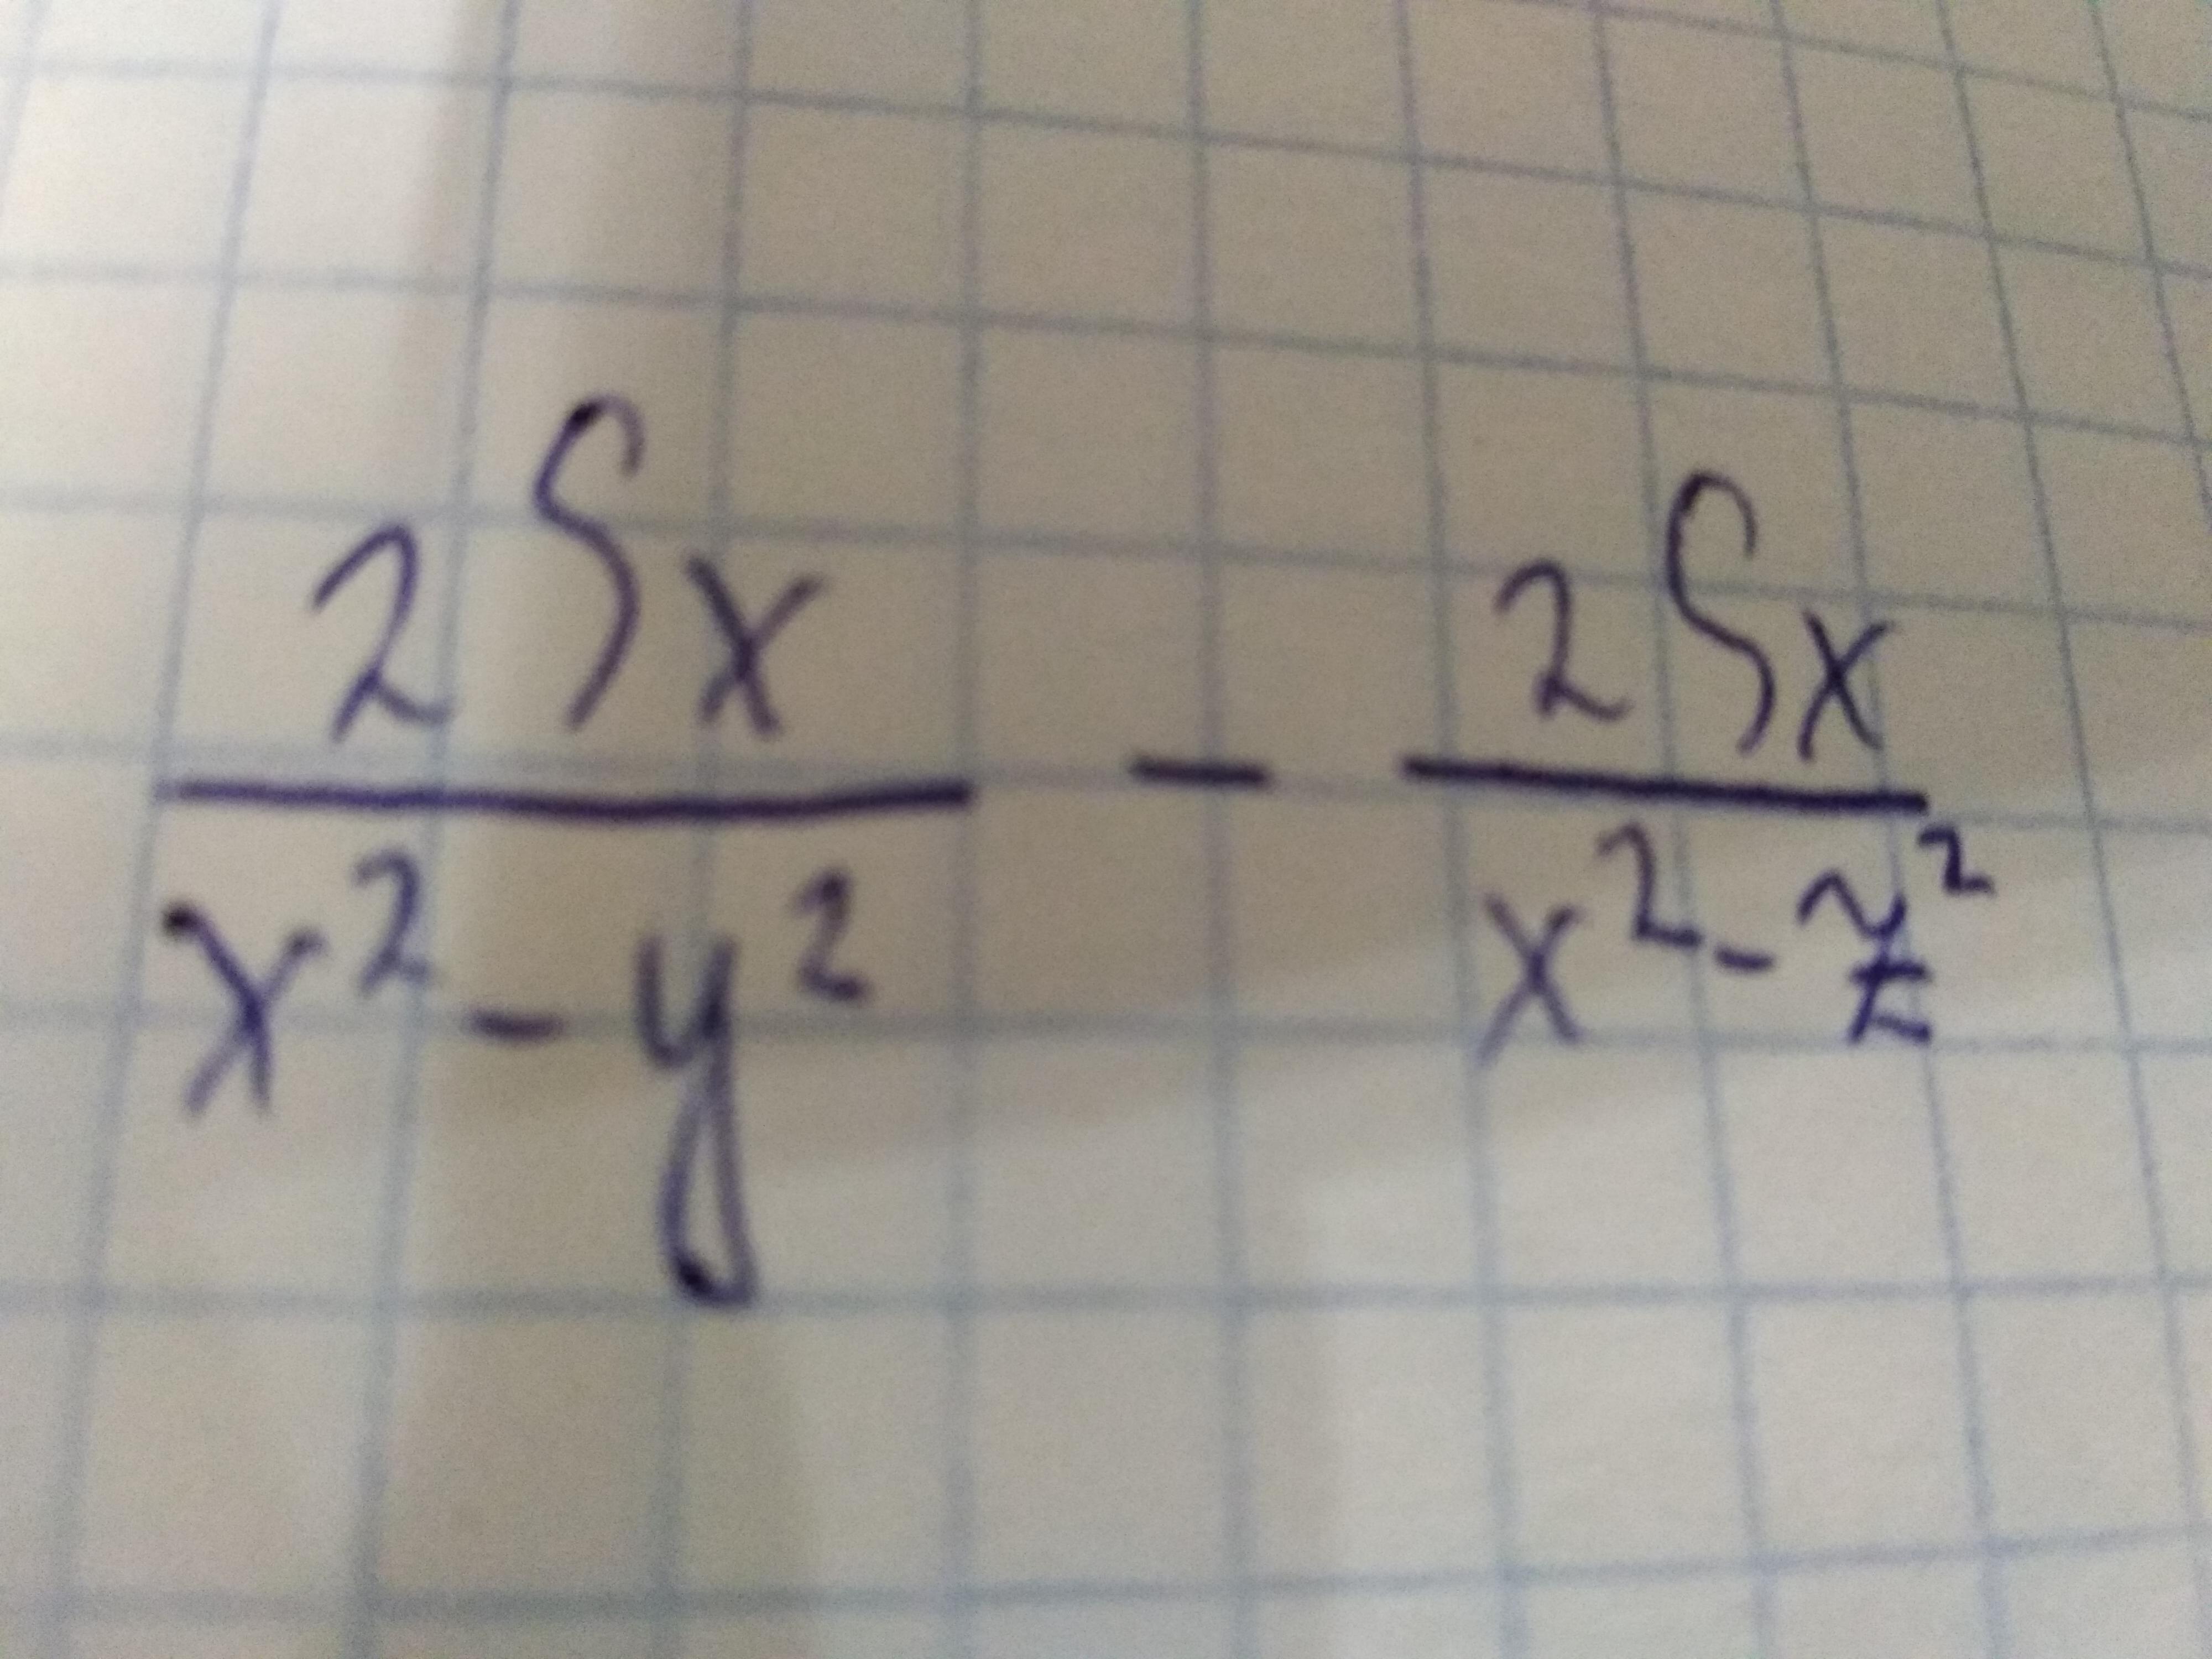 2 5x / x² - y² - 2 5x / x² - z²